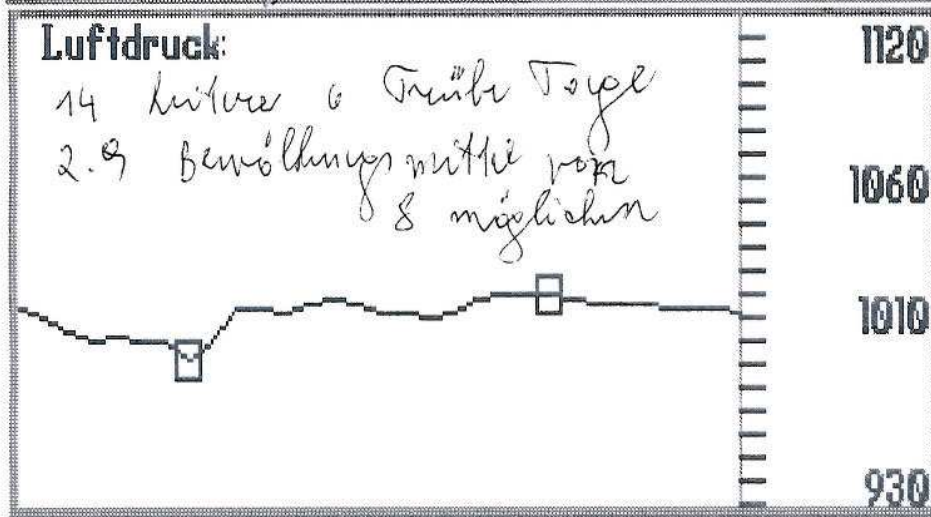 Luftdruck:
14 heitere 6 Trübe Tage
2.9 Bewölkungsmittel von
8 möglichen
1120
1060
1010
930